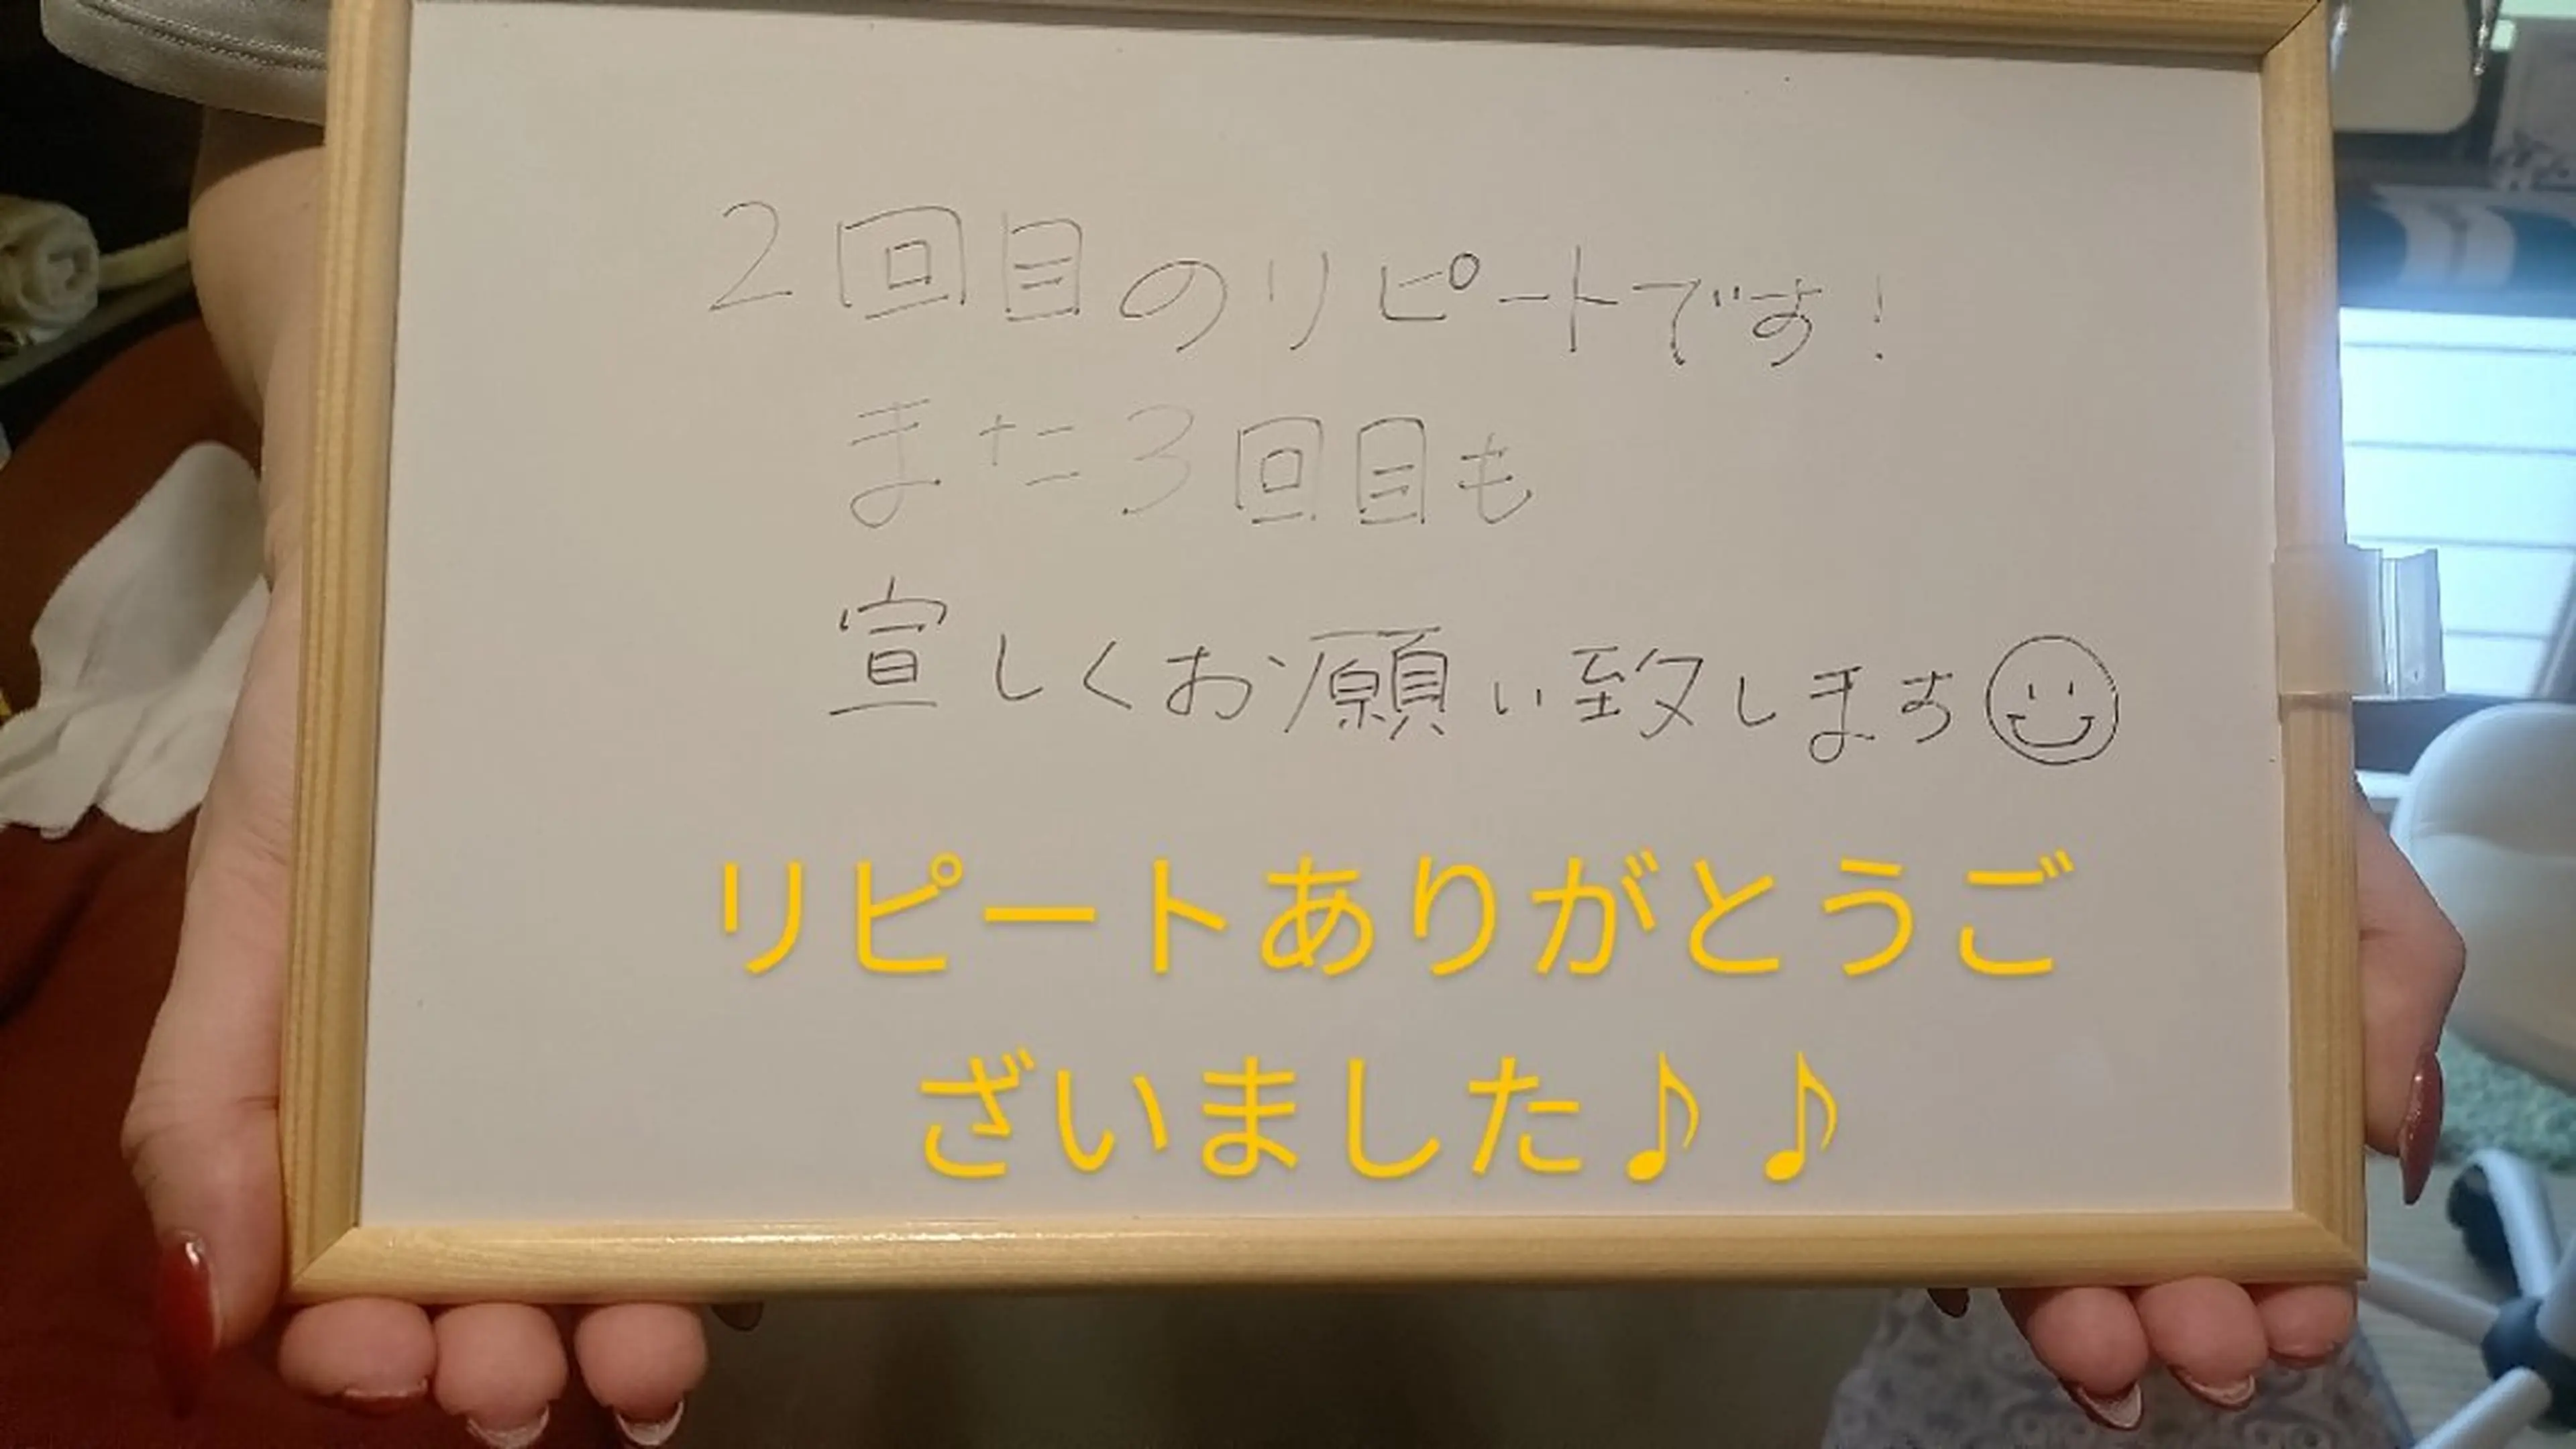 2回目のリピートです!
また3回目も
宣しくお願い致します
リピートありがとうご
ざいました♪♪